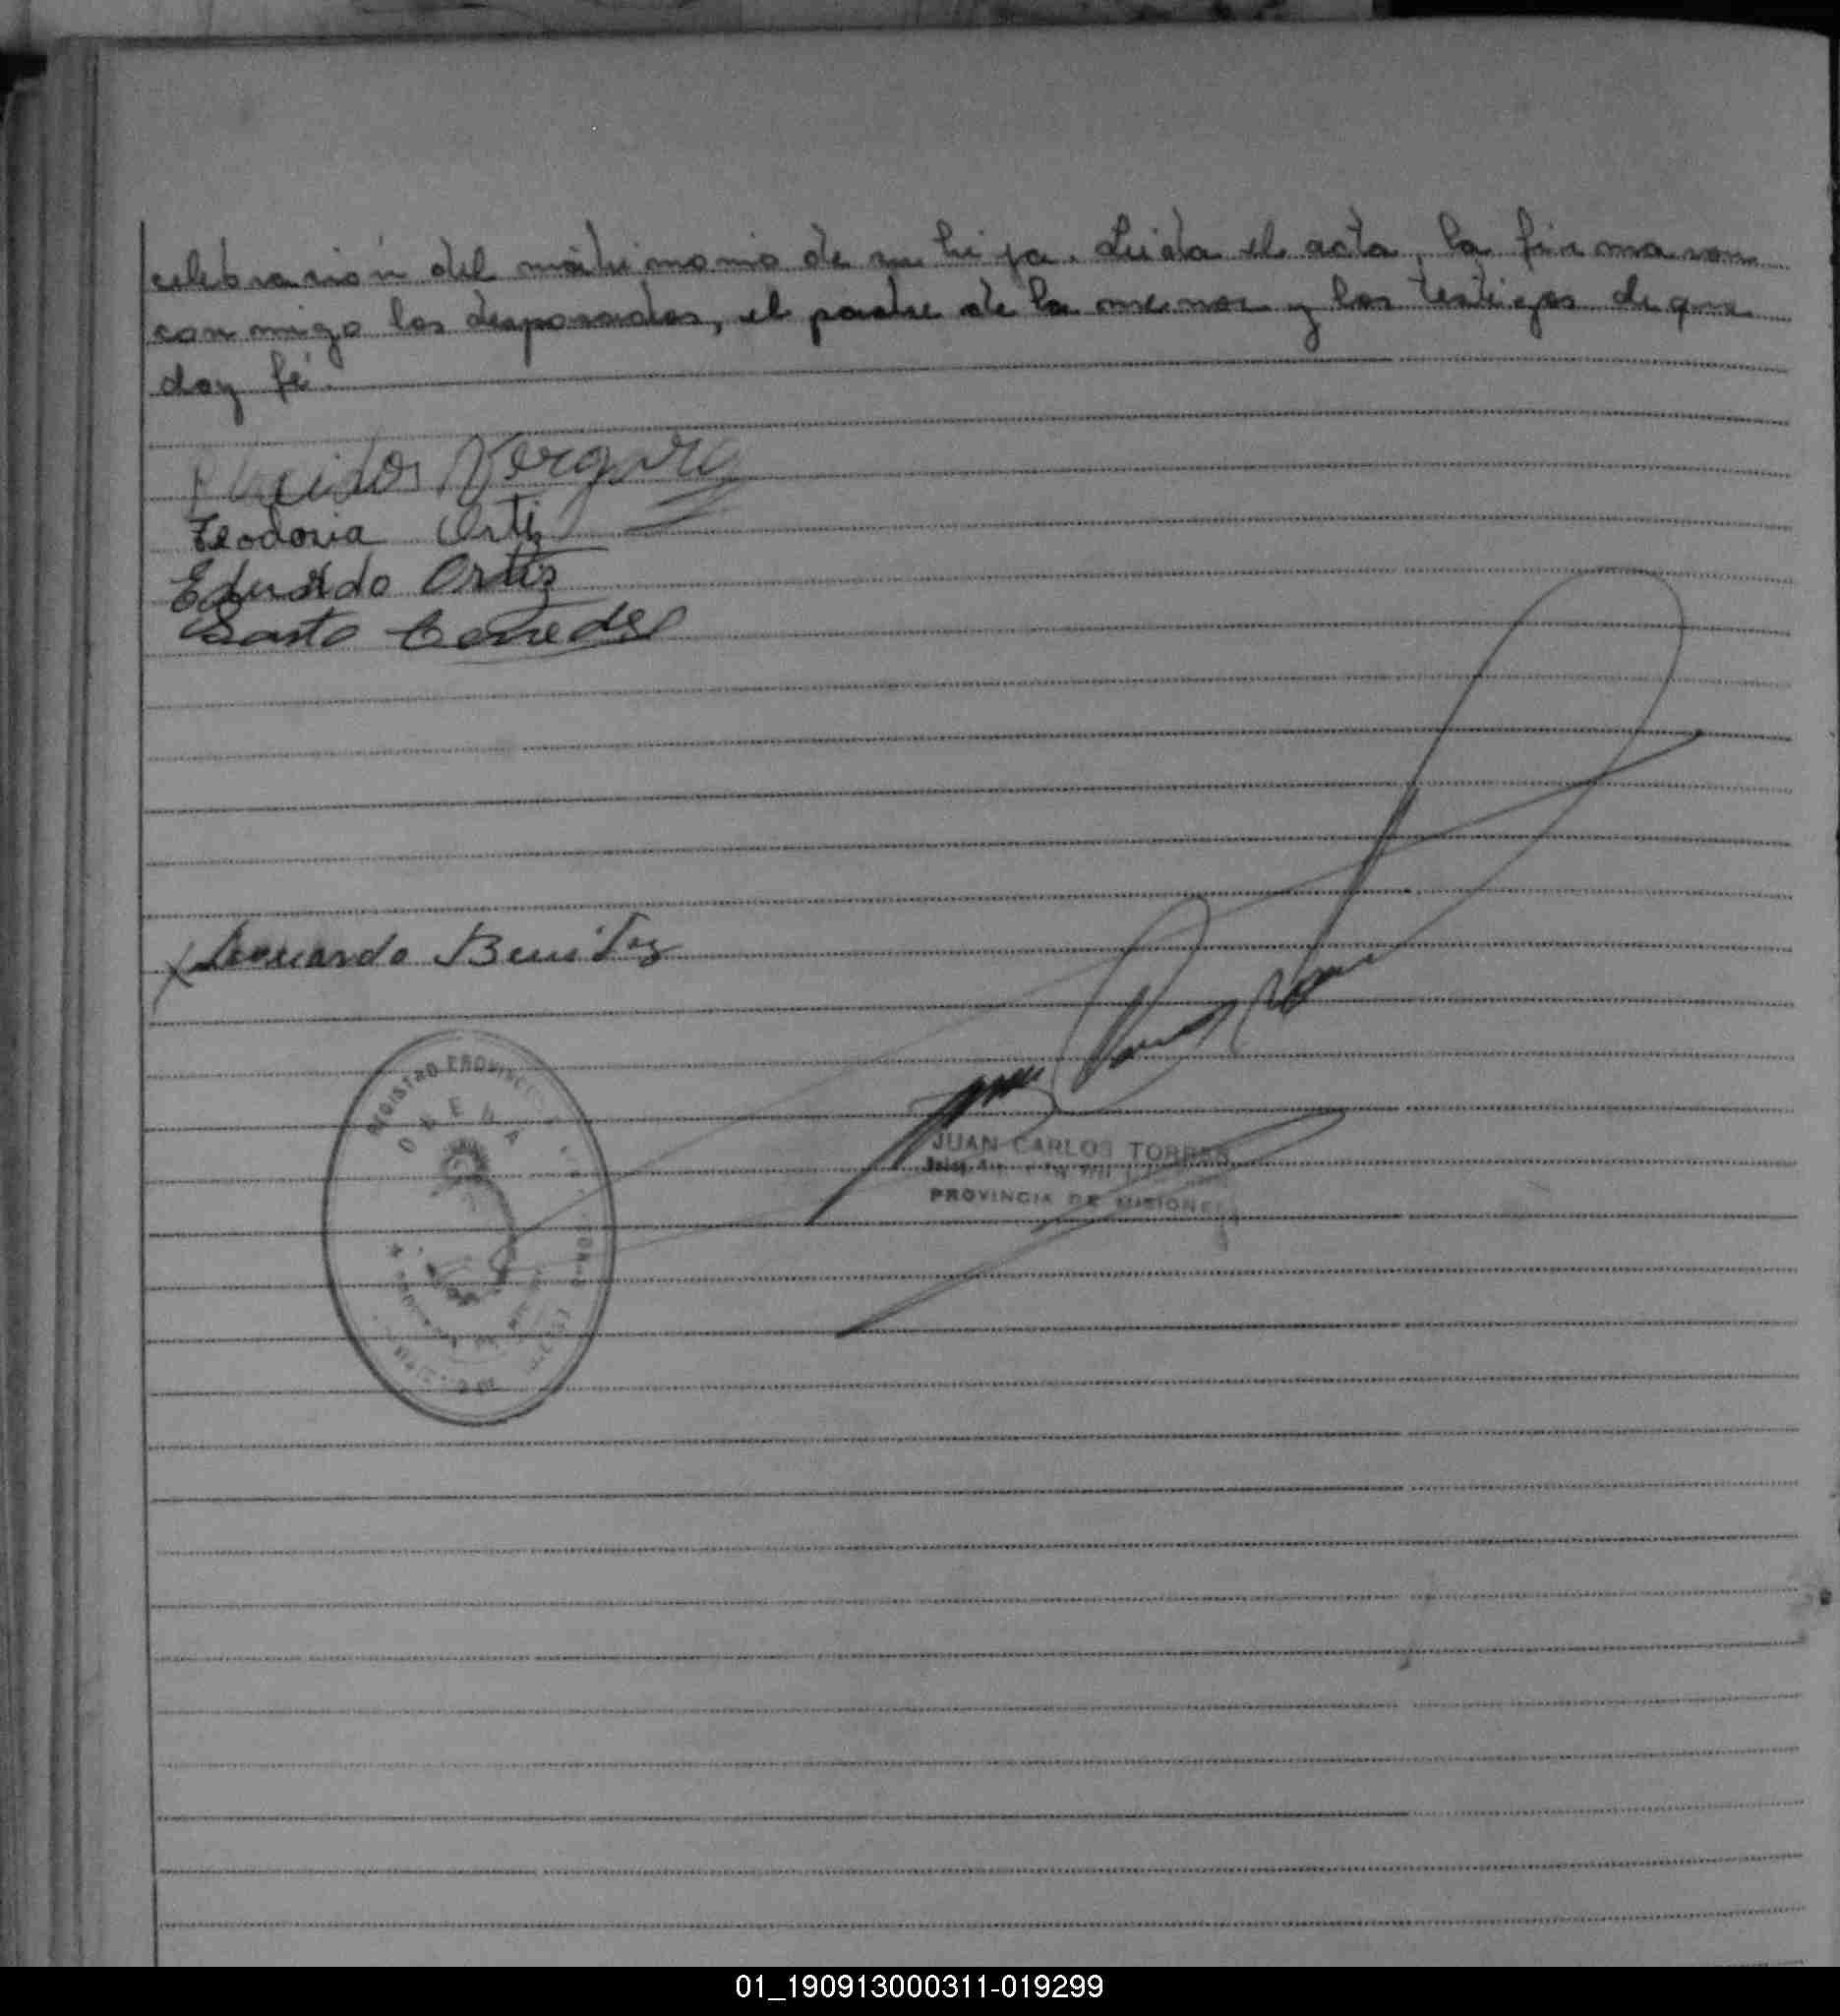 celebración del matrimonio de su hija. Leida el acta, la firmaron
conmigo los desposados, el padre de la menor y los testigos de que
doy fé.
Vergara
Teodoria Ortiz
Eduardo Ortiz
Santo
Leonardo Benitez
REGISTRO PROVINCIAL
OBERA
JUAN CARLOS TORRES
PROVINCIA DE MISIONES
01_190913000311-019299